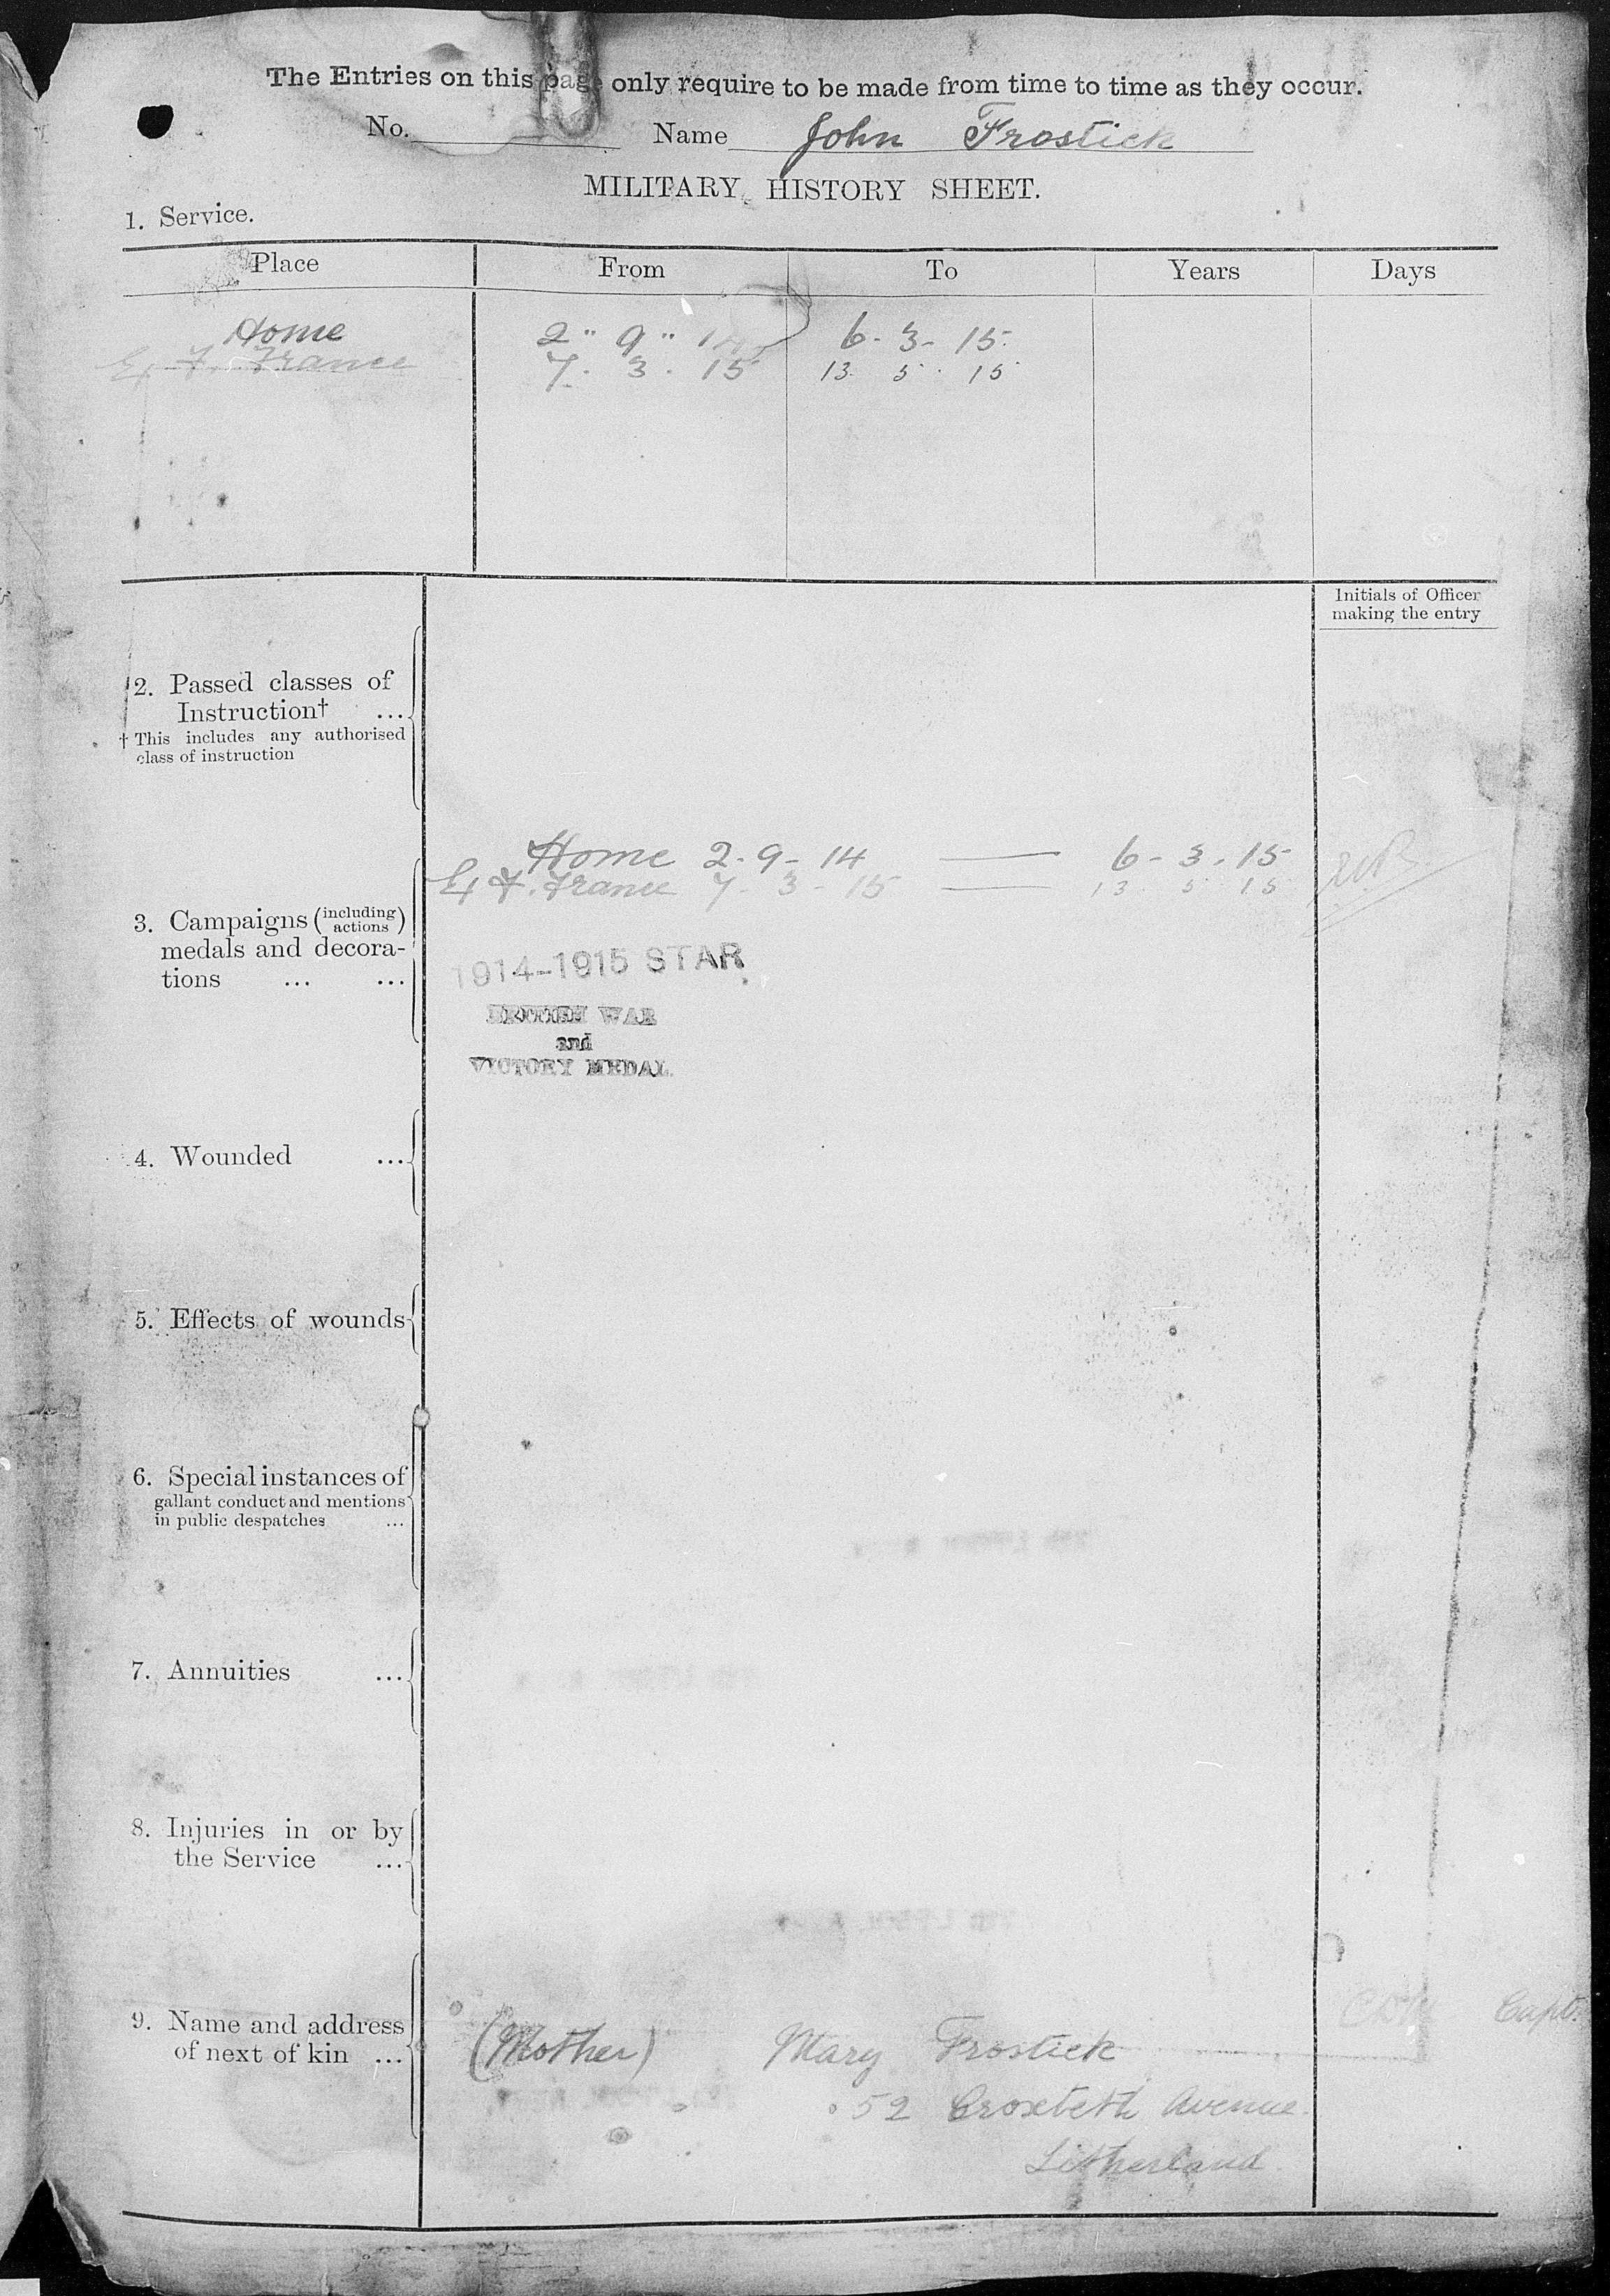 The Entries on this page only require to be made from time to time as they occur.
No. Name John Frostick
MILITARY HISTORY SHEET.
1. Service.
Place From To Years Days
Home 2 " 9 " 14 6 - 3 - 15
E. F. France 7 . 3 . 15 13 . 5 . 15
Initials of Officer
making the entry
2. Passed classes of
Instruction† ...
† This includes any authorised
class of instruction
Home 2 - 9 - 14 — 6 - 3 - 15
E. F. France 7 - 3 - 15 — 13 5 15
3. Campaigns (including actions)
medals and decora-
tions ... ...
1914-1915 STAR
BRITISH WAR
and
VICTORY MEDAL.
4. Wounded ...
5. Effects of wounds
6. Special instances of
gallant conduct and mentions
in public despatches ...
7. Annuities ...
8. Injuries in or by
the Service ...
9. Name and address
of next of kin ...
(Mother) Mary Frostick
52 Croxteth Avenue
Litherland
Capt.